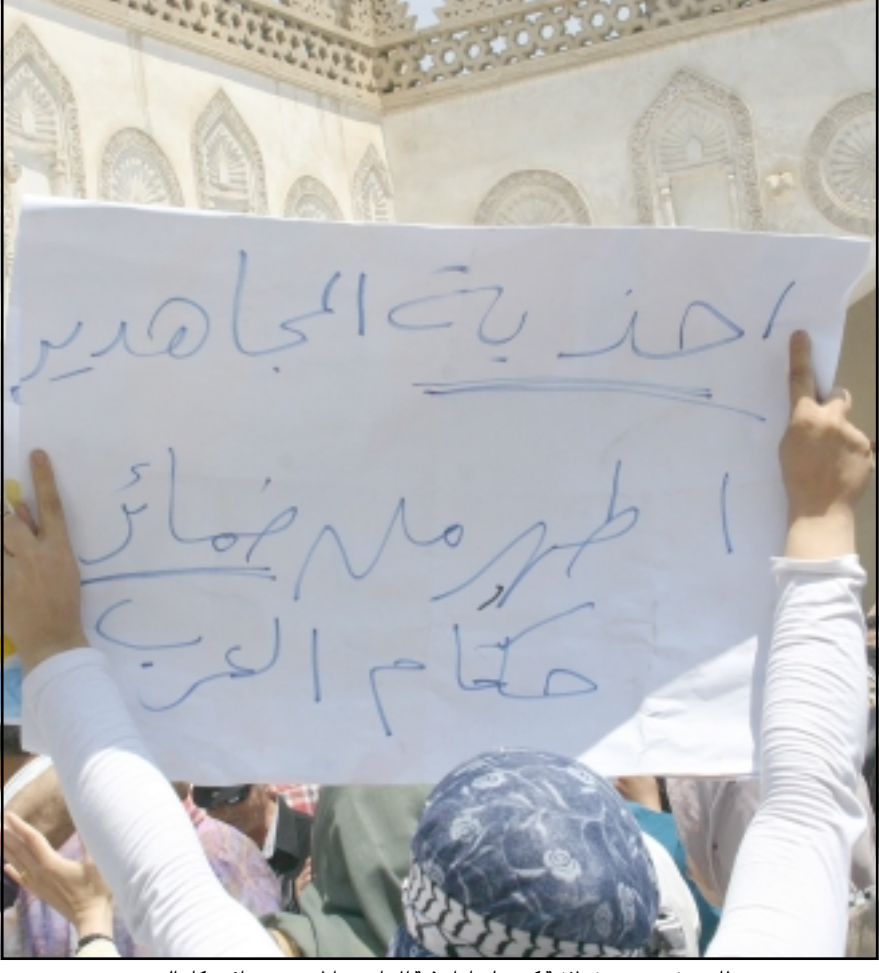 احذية المجاهدين
اطهر من ضمائر
حكام العرب